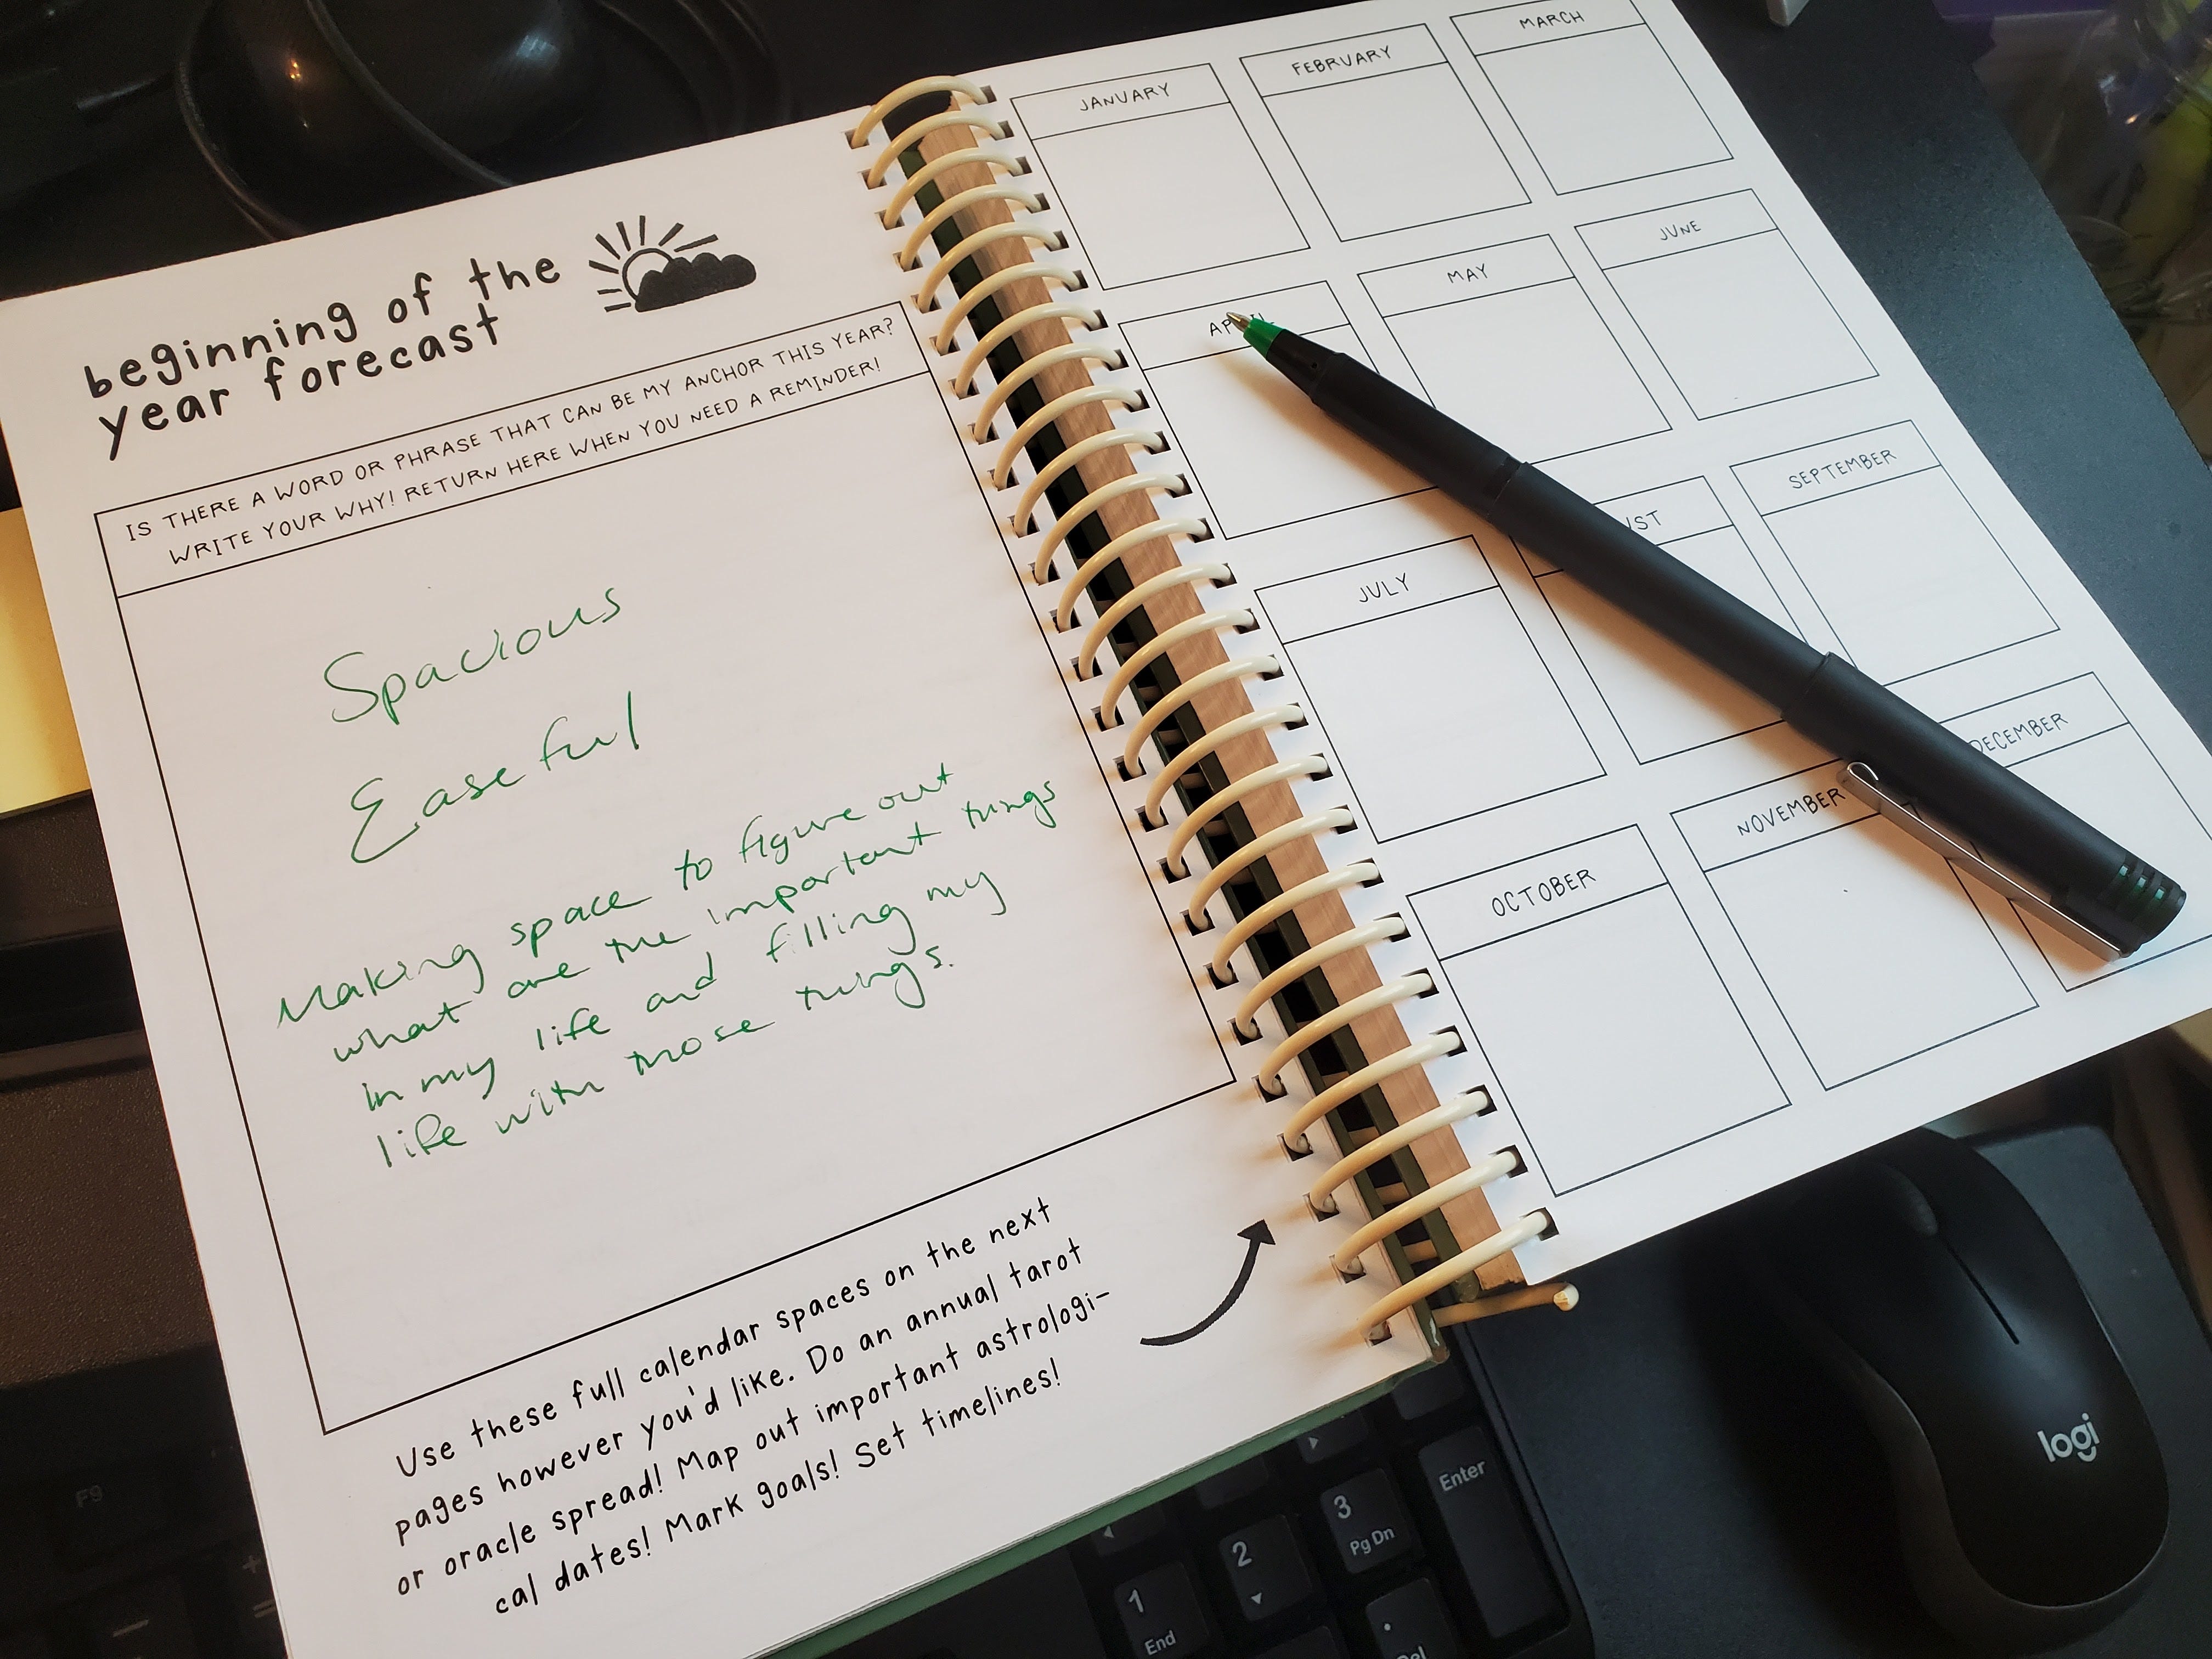 beginning of the
year forecast
IS THERE A WORD OR PHRASE THAT CAN BE MY ANCHOR THIS YEAR?
WRITE YOUR WHY! RETURN HERE WHEN YOU NEED A REMINDER!
Spacious
Easeful
Making space to figure out
what are the important things
in my life and filling my
life with those things.
Use these full calendar spaces on the next
pages however you'd like. Do an annual tarot
or oracle spread! Map out important astrologi-
cal dates! Mark goals! Set timelines!
JANUARY
FEBRUARY
MARCH
MAY
JUNE
JULY
SEPTEMBER
OCTOBER
NOVEMBER
DECEMBER
logi
F9
Enter
3
Pg Dn
2
1
End